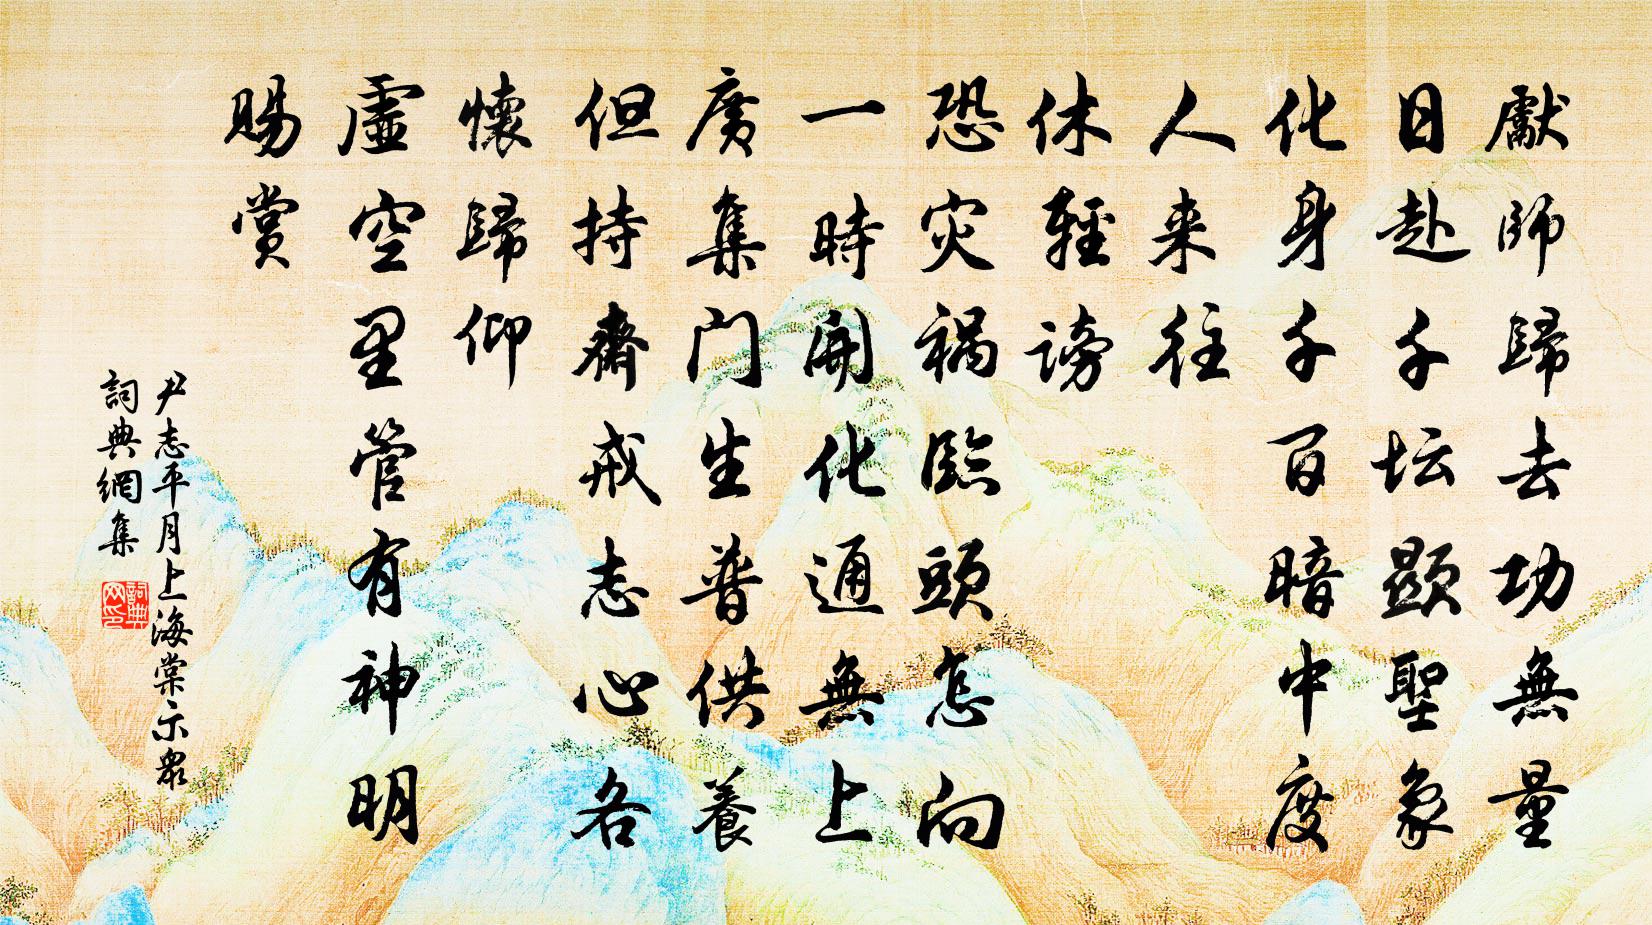 獻師歸去功無量
日赴千坛顯聖象
化身千百暗中度
人来往
休輕謗
恐灾禍臨頭怎向
一時開化通無上
廣集门生普供養
但持齋戒志心各
懷歸仰
虛空里管有神明
賜賞
尹志平月上海棠示眾
詞典網集